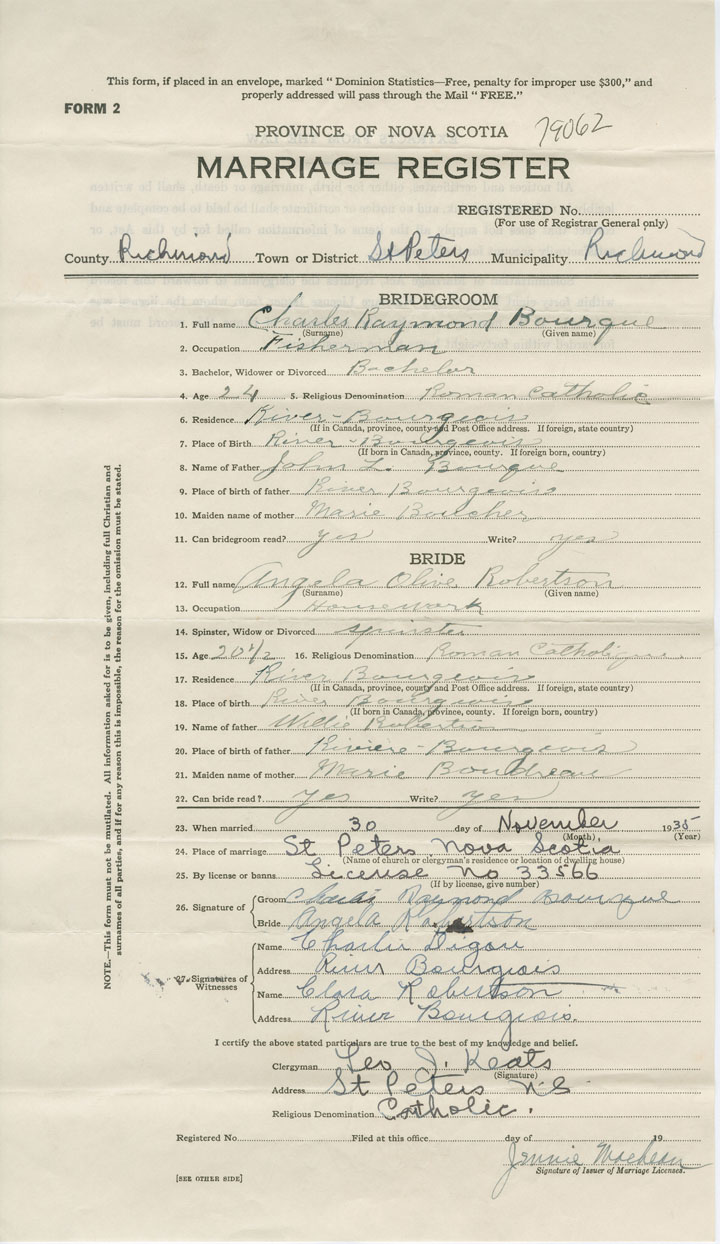 This form, if placed in an envelope, marked “ Dominion Statistics—Free, penalty for improper use $300,” and
properly addressed will pass through the Mail “ FREE.”
FORM 2
PROVINCE OF NOVA SCOTIA 79062
MARRIAGE REGISTER
REGISTERED No.
(For use of Registrar General only)
County Richmond Town or District St Peters Municipality Richmond
BRIDEGROOM
1. Full name Charles Raymond Bourque
(Surname) (Given name)
2. Occupation Fisherman
3. Bachelor, Widower or Divorced Bachelor
4. Age 24 5. Religious Denomination Roman Catholic
6. Residence River-Bourgeois
(If in Canada, province, county and Post Office address. If foreign, state country)
7. Place of Birth River-Bourgeois
(If born in Canada, province, county. If foreign born, country)
8. Name of Father John L. Bourque
9. Place of birth of father River Bourgeois
10. Maiden name of mother Marie Boucher
11. Can bridegroom read? yes Write? yes
BRIDE
12. Full name Angela Olive Robertson
(Surname) (Given name)
13. Occupation Housework
14. Spinster, Widow or Divorced spinster
15. Age 20 1/2 16. Religious Denomination Roman Catholique
17. Residence River Bourgeois
(If in Canada, province, county and Post Office address. If foreign, state country)
18. Place of birth River Bourgeois
(If born in Canada, province, county. If foreign born, country)
19. Name of father Willie Robertson
20. Place of birth of father Riviere-Bourgeois
21. Maiden name of mother Marie Boudreau
22. Can bride read? yes Write? yes
23. When married 30 day of November 1935
(Month) (Year)
24. Place of marriage St Peters Nova Scotia
(Name of church or clergyman's residence or location of dwelling house)
25. By license or banns License No 33566
(If by license, give number)
26. Signature of Groom Charles Raymond Bourque
Bride Angela Robertson
27. Signatures of Witnesses
Name Charlie Digou
Address River Bourgeois
Name Clara Robertson
Address River Bourgeois.
I certify the above stated particulars are true to the best of my knowledge and belief.
Clergyman Leo J. Keats
(Signature)
Address St Peters N S
Religious Denomination Catholic.
Registered No. Filed at this office day of 19
Jennie
Signature of Issuer of Marriage Licenses.
[SEE OTHER SIDE]
NOTE.—This form must not be mutilated. All information asked for is to be given, including full Christian and
surnames of all parties, and if for any reason this is impossible, the reason for the omission must be stated.